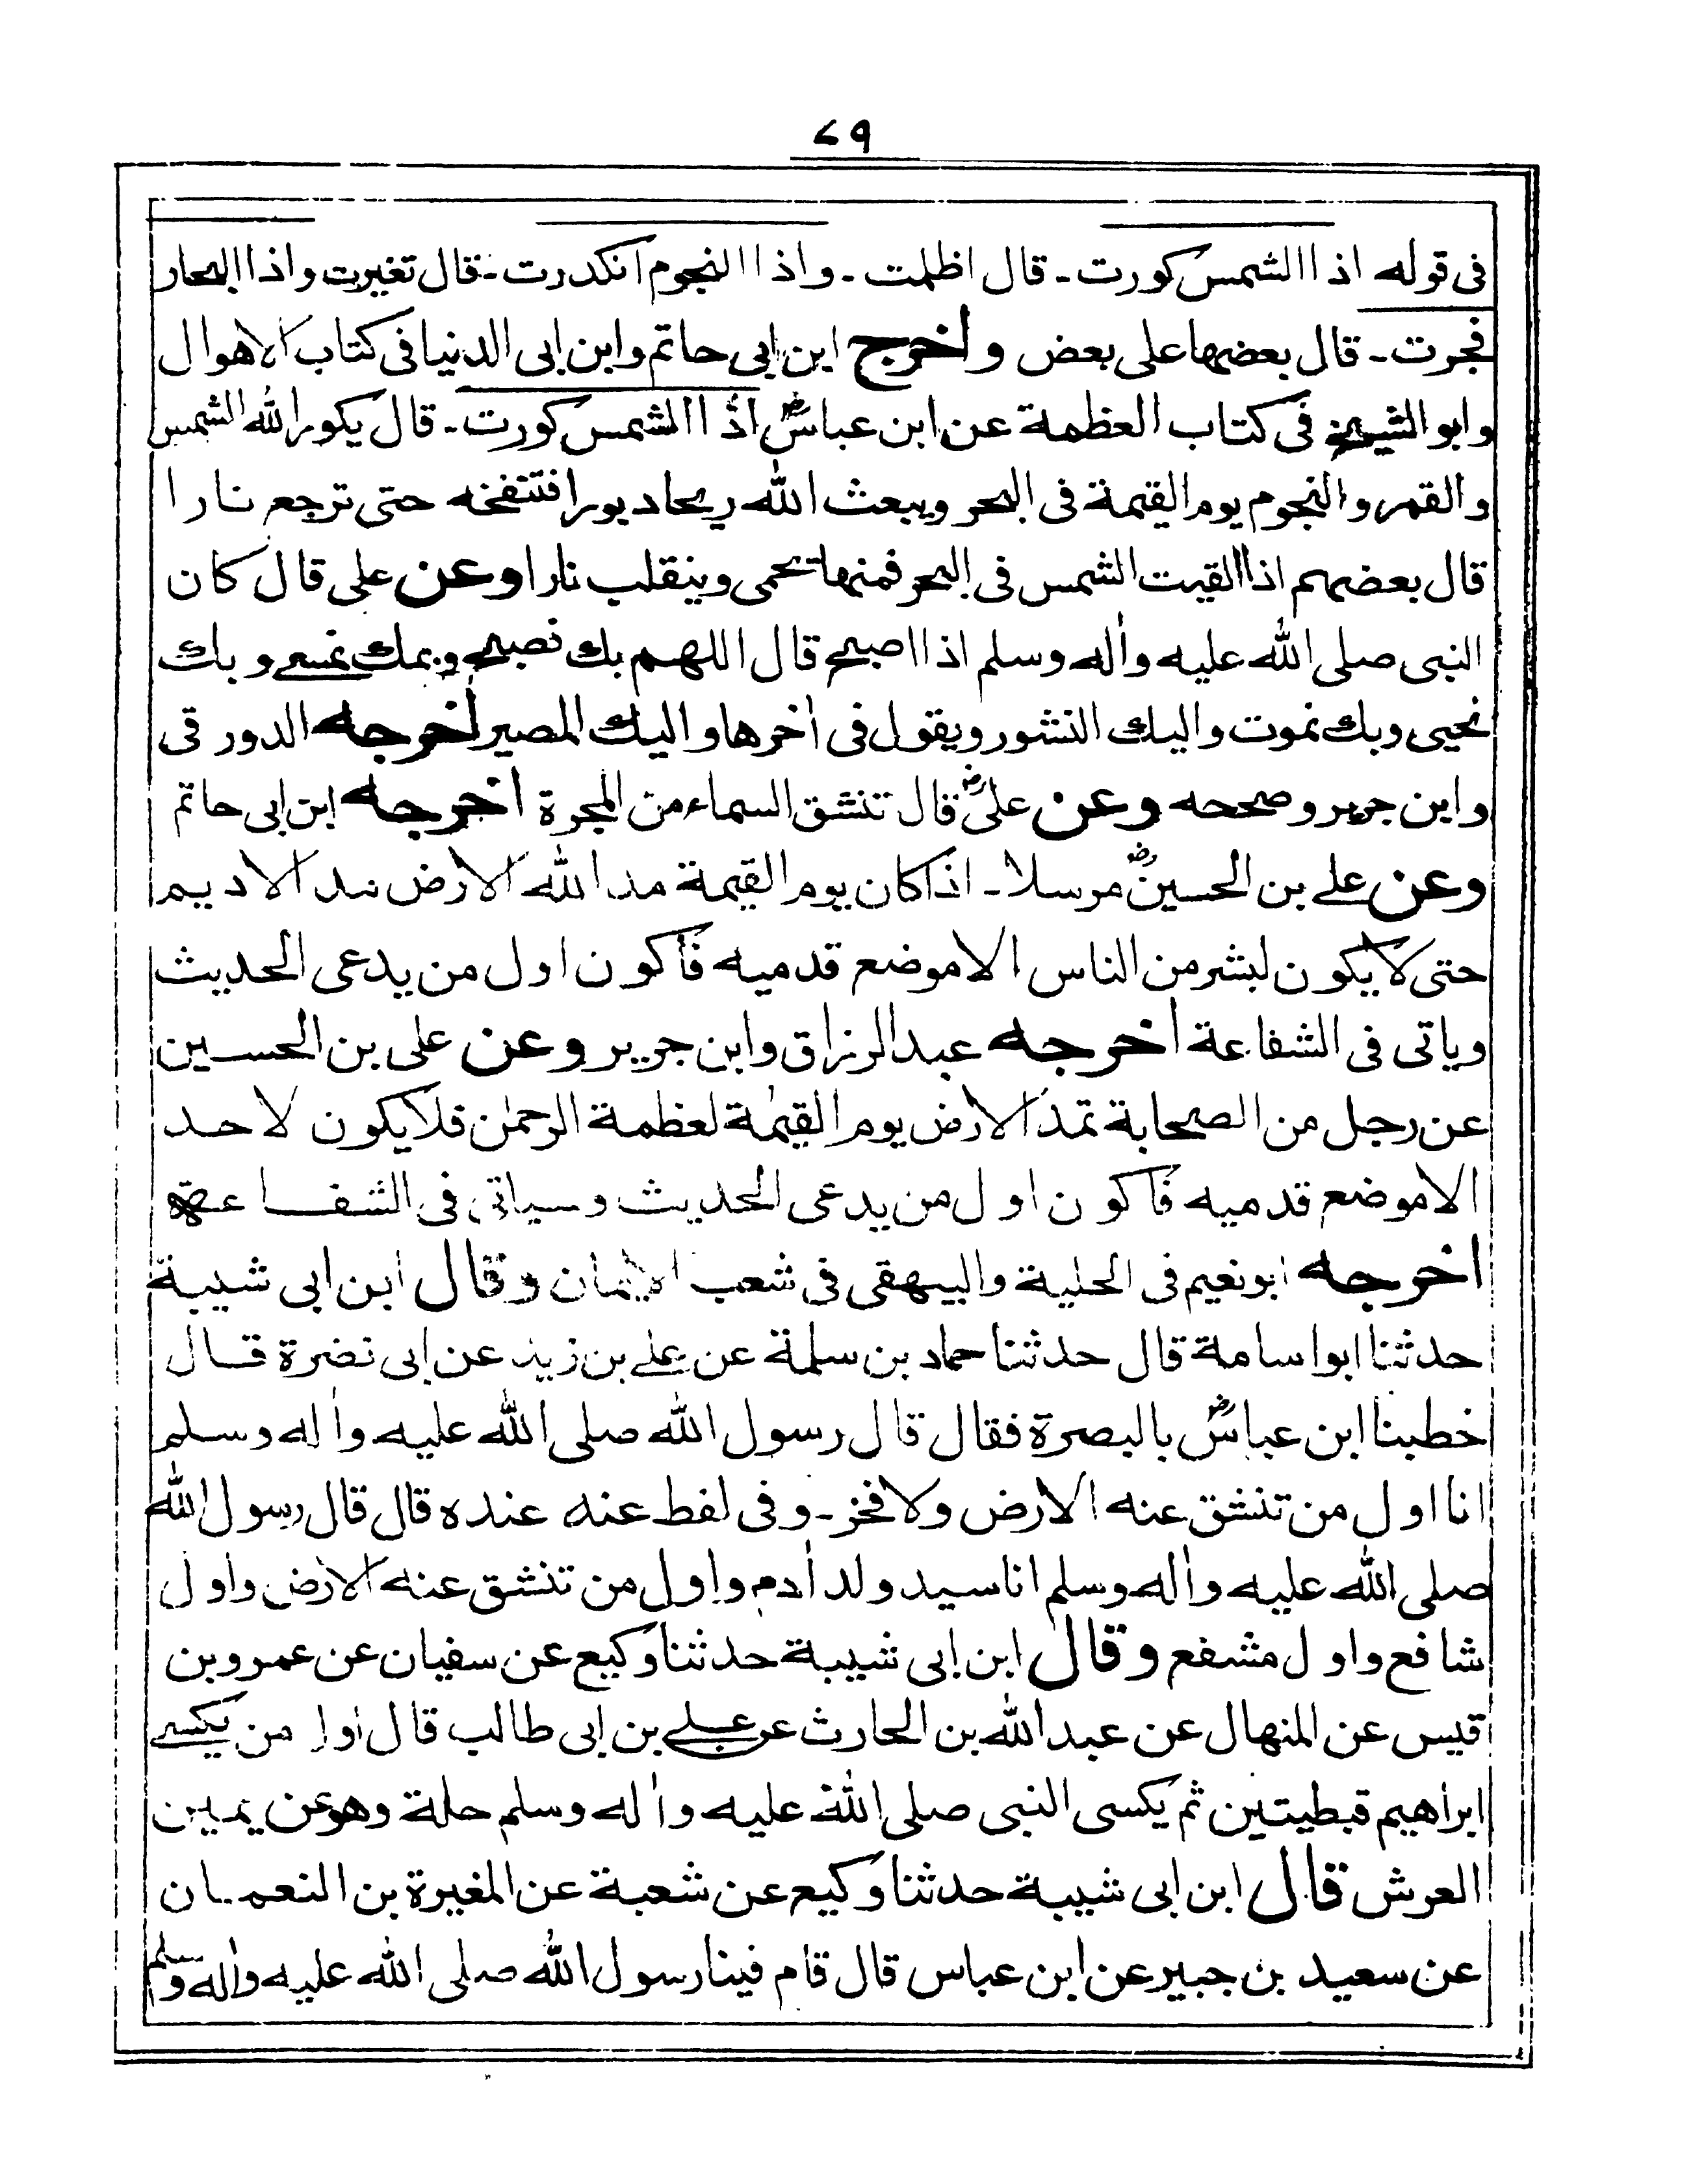 ۷۹
فى قوله اذا الشمس كورت - قال اظلمت - واذا النجوم انكدرت - قال تغيرت واذا البحار
فجرت - قال بعضها على بعض واخرج ابن ابى حاتم وابن ابى الدنيا فى كتاب الاهوال
وابو الشيخ فى كتاب العظمة عن ابن عباسؓ اذا الشمس كورت - قال يكور الله الشمس
والقمر والنجوم يوم القيمة فى البحر ويبعث الله ريحا دبورا فتنفخه حتى ترجع نارا
قال بعضهم اذا القيت الشمس فى البحر فمنها تحمى وينقلب نارا وعن على قال كان
النبى صلى الله عليه واٰله وسلم اذا اصبح قال اللهم بك نصبح وبك نمسے وبك
نحيى وبك نموت واليك النشور ويقول فى اٰخرها واليك المصير اخرجه الدورقى
وابن جرير وصححه وعن علىؓ قال تنشق السماء من المجرة اخرجه ابن ابى حاتم
وعن علے بن الحسينؓ مرسلا - اذا كان يوم القيمة مد الله الارض مد الاديم
حتى لا يكون لبشر من الناس الا موضع قدميه فأكون اول من يدعى الحديث
وياتى فى الشفاعة اخرجه عبد الرزاق وابن جرير وعن على بن الحسين
عن رجل من الصحابة تمد الارض يوم القيمة لعظمة الرحمٰن فلا يكون لاحد
الا موضع قدميه فأكون اول من يدعى الحديث وسياتى فى الشفاعة
اخرجه ابو نعيم فى الحلية والبيهقى فى شعب الايمان وقال ابن ابى شيبة
حدثنا ابو اسامة قال حدثنا حماد بن سلمة عن علے بن زيد عن ابى نضرة قال
خطبنا ابن عباسؓ بالبصرة فقال قال رسول الله صلى الله عليه واٰله وسلم
انا اول من تنشق عنه الارض ولا فخر - وفى لفط عنه عنده قال قال رسول الله
صلى الله عليه واٰله وسلم انا سيد ولد اٰدم واول من تنشق عنه الارض واول
شافع واول مشفع وقال ابن ابى شيبة حدثنا وكيع عن سفيان عن عمرو بن
قيس عن المنهال عن عبد الله بن الحارث عن علے بن ابى طالب قال اول من يكسے
ابراهيم قبطيتين ثم يكسى النبى صلى الله عليه واٰله وسلم حلة وهو عن يمين
العرش قال ابن ابى شيبة حدثنا وكيع عن شعبة عن المغيرة بن النعمان
عن سعيد بن جبير عن ابن عباس قال قام فينا رسول الله صلى الله عليه واٰله وسلم